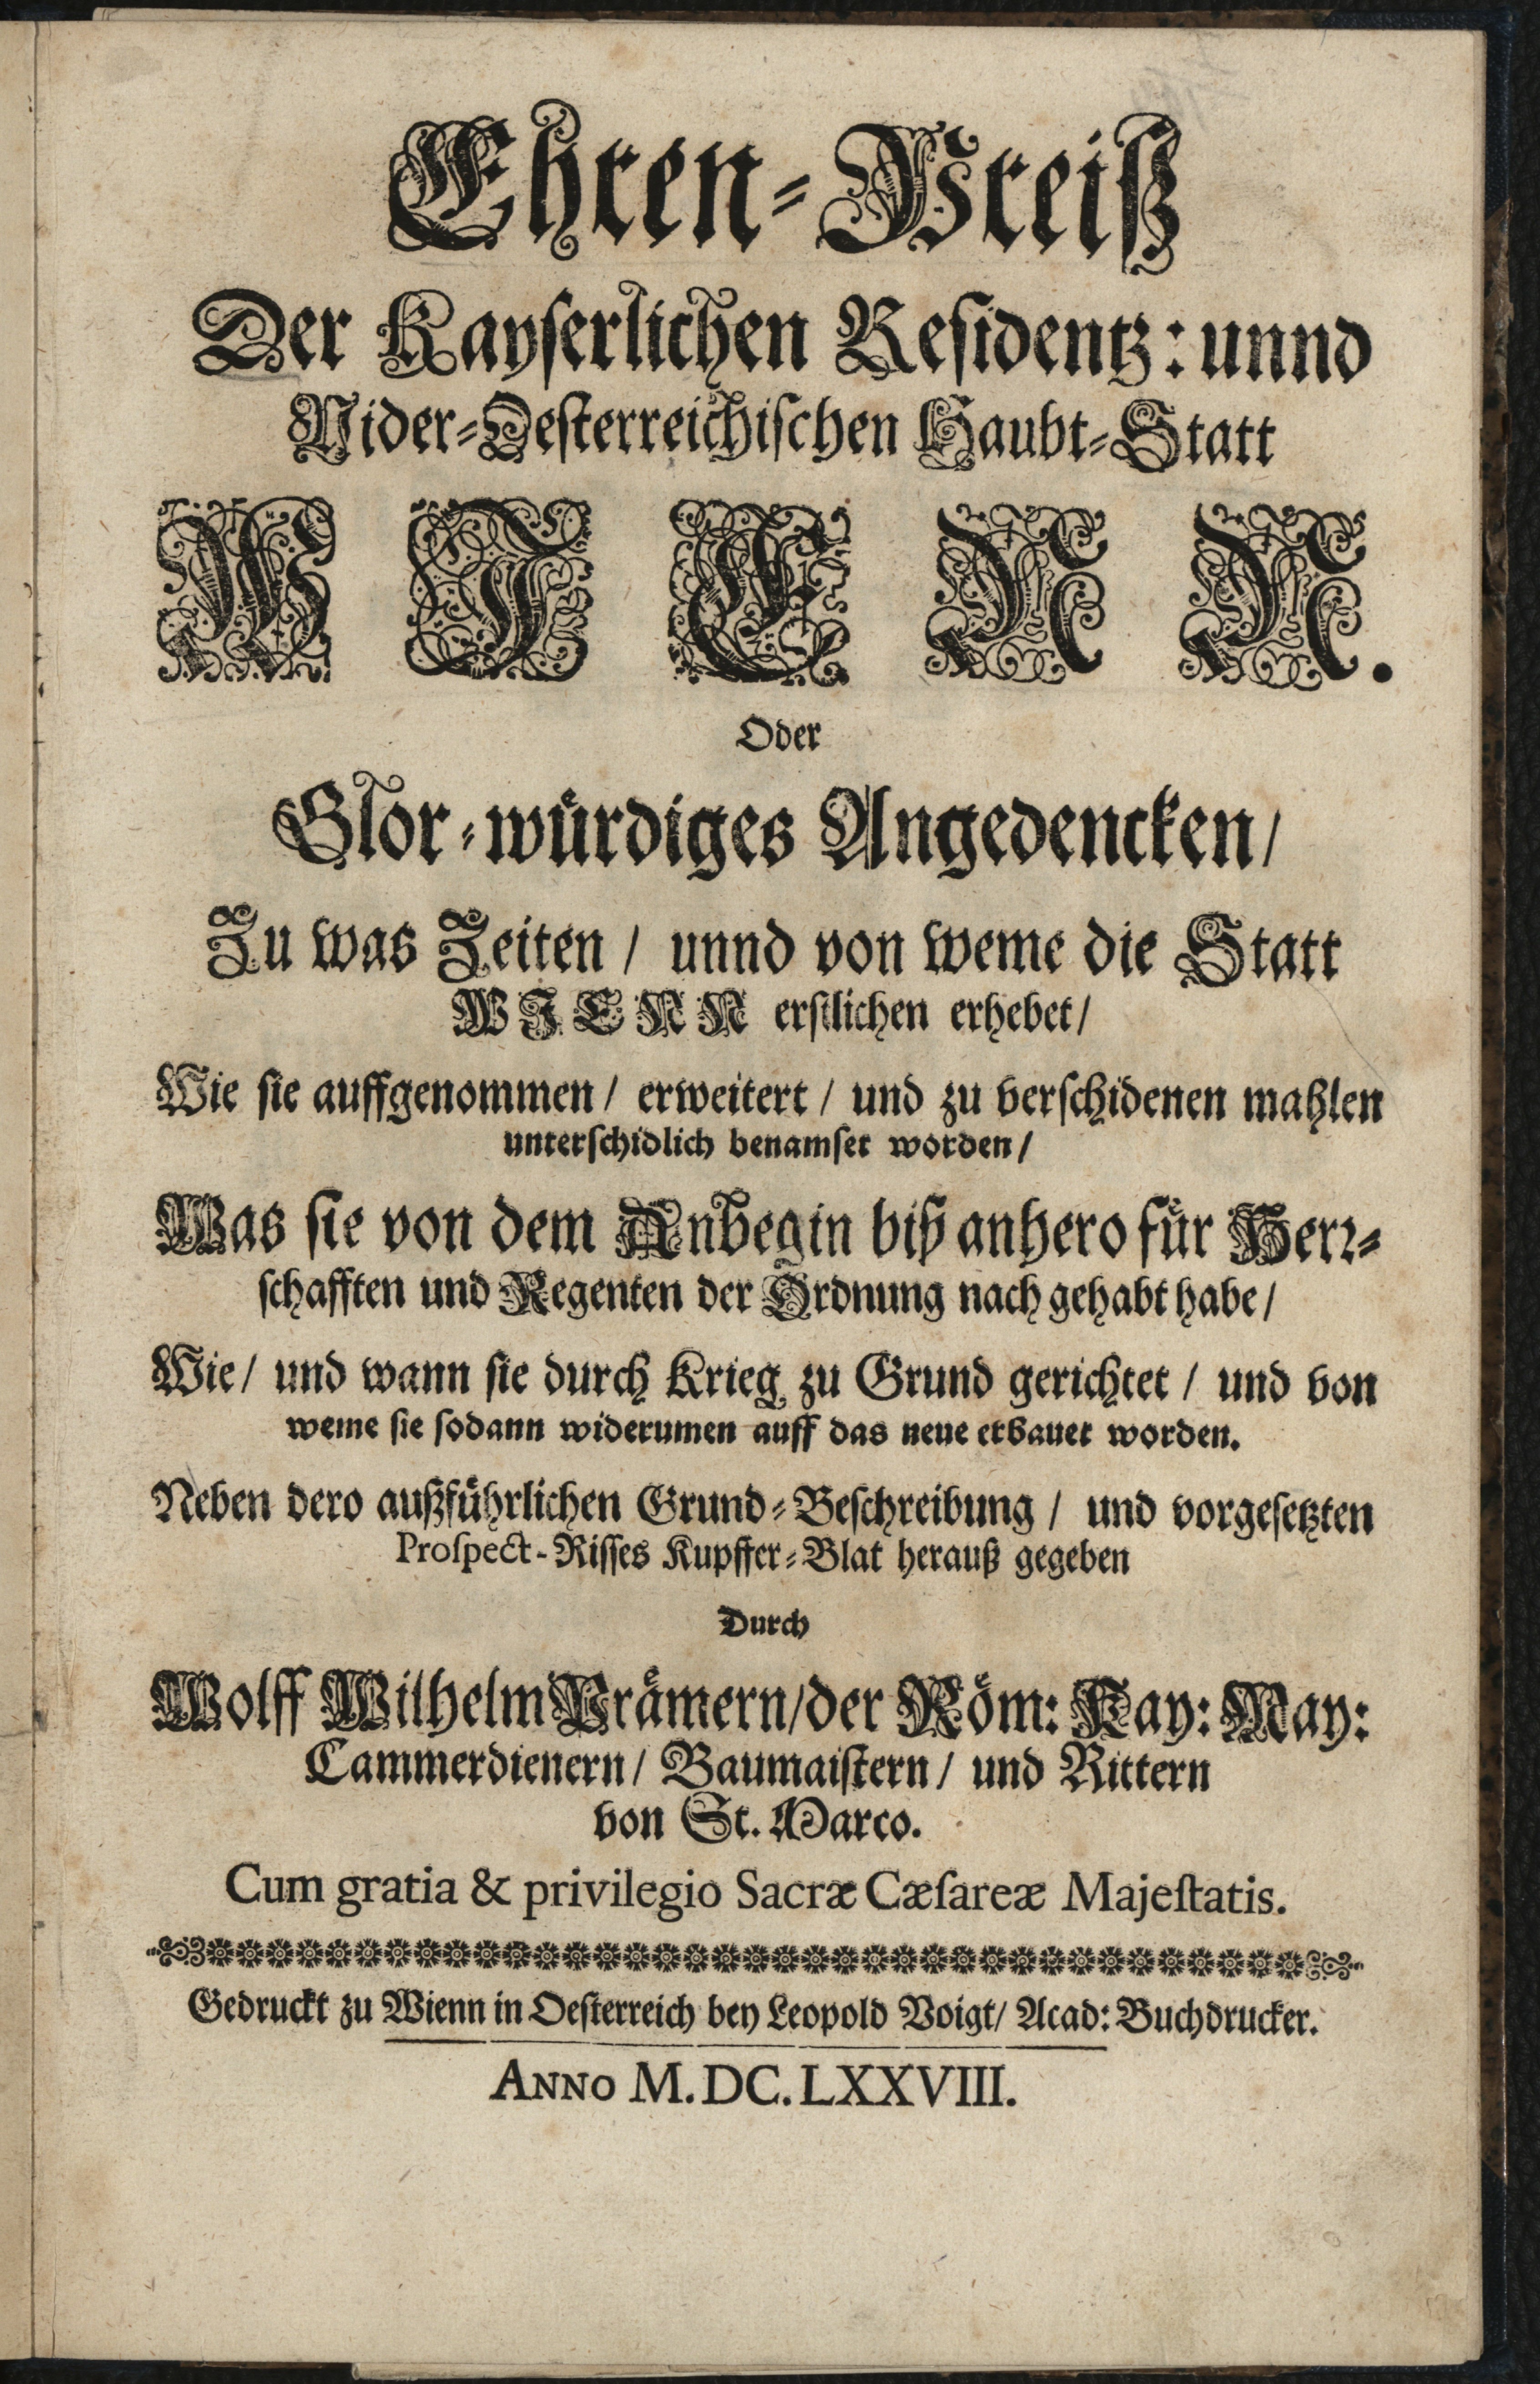 Ehren-Preiß
Der Kayserlichen Residentz: unnd
Nider-Oesterreichischen Haubt-Statt
WIENN.
Oder
Glor-würdiges Angedencken/
Zu was Zeiten / unnd von weme die Statt
WIENN erstlichen erhebet/
Wie sie auffgenommen / erweitert / und zu verschidenen mahlen
unterschidlich benamset worden /
Was sie von dem Anbegin biß anhero für Herr-
schafften und Regenten der Ordnung nach gehabt habe /
Wie / und wann sie durch Krieg zu Grund gerichtet / und von
weme sie sodann widerumen auff das neue erbauet worden.
Neben dero außführlichen Grund-Beschreibung / und vorgesetzten
Prospect-Risses Kupffer-Blat herauß gegeben
Durch
Wolff Wilhelm Prämern/der Röm: Kay: May:
Cammerdienern / Baumaistern / und Rittern
von St. Marco.
Cum gratia & privilegio Sacræ Cæsareæ Majestatis.
Gedruckt zu Wienn in Oesterreich bey Leopold Voigt/ Acad: Buchdrucker.
ANNO M.DC.LXXVIII.